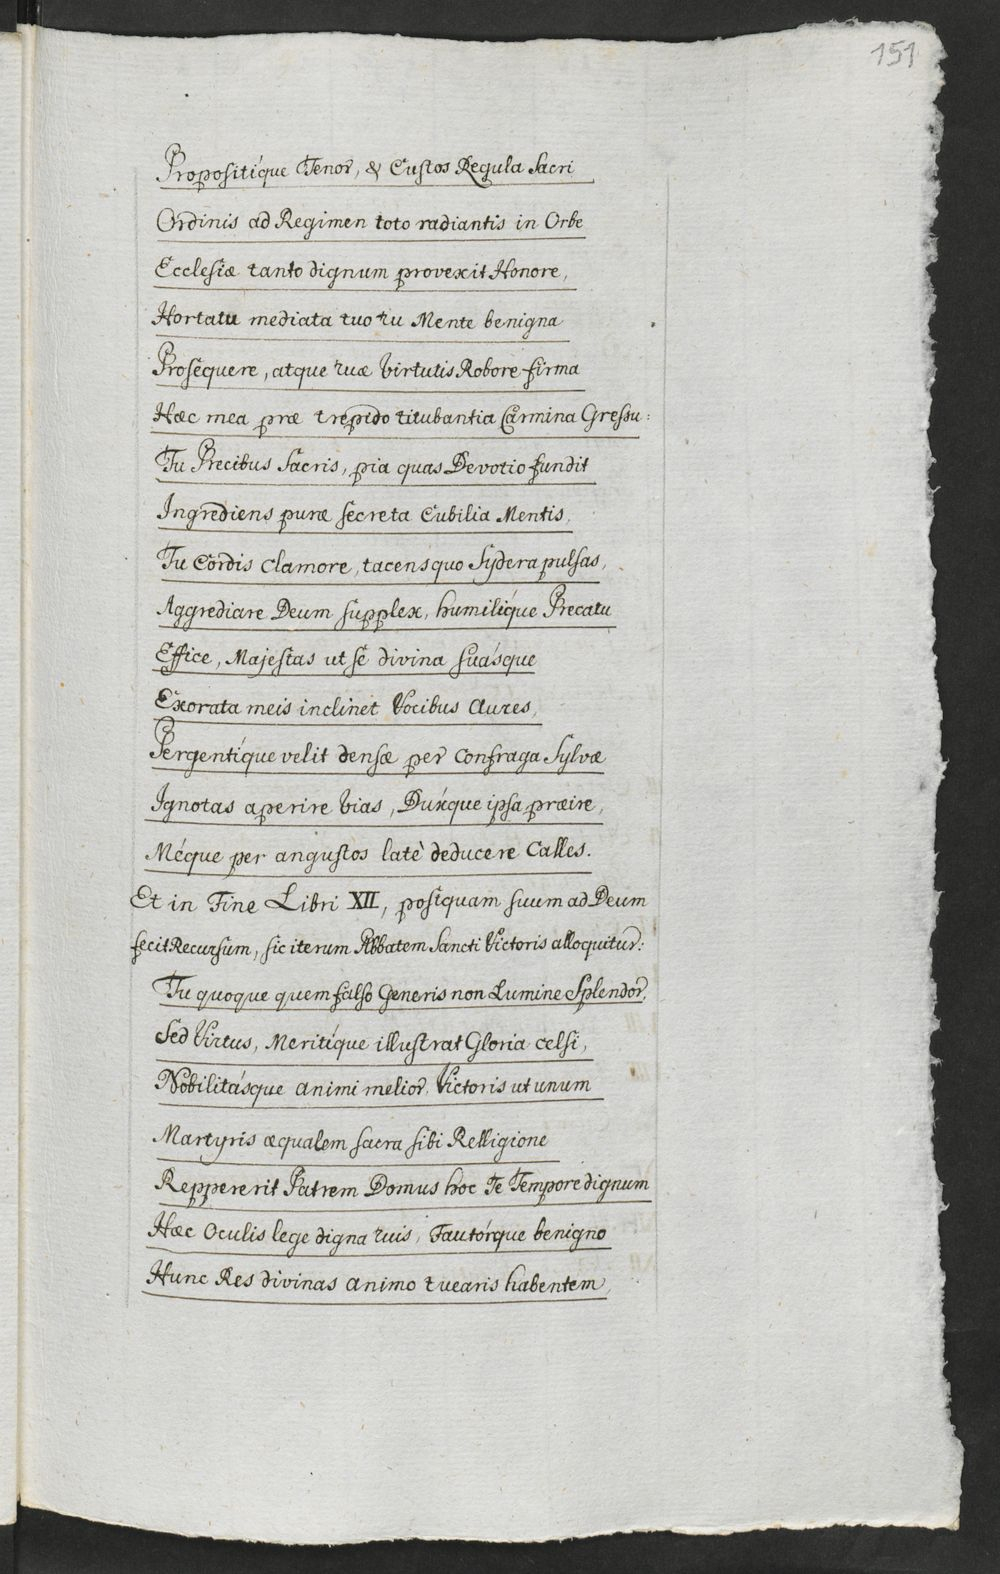 151
Propositíque Tenor, & Custos Regula Sacri
Ordinis ad Regimen toto radiantis in Orbe
Ecclesiæ tanto dignum provexit Honore,
Hortatu mediata tuo tu Mente benigna
Prosequere, atque tuæ Virtutis Robore firma
Hæc mea præ trepido titubantia Carmina Gressu:
Tu Precibus Sacris, pia quas Devotio fundit
Ingrediens puræ secreta Cubilia Mentis,
Tu Cordis clamore, tacens quo Sydera pulsas,
Aggrediare Deum supplex, humilíque Precatu
Effice, Majestas ut se divina suásque
Exorata meis inclinet Vocibus Aures,
Pergentíque velit densæ per confraga Sylvæ
Ignotas aperire Vias, Dúxque ipsa præire,
Méque per angustos latè deducere Calles.
Et in Fine Libri XII, postquam suum ad Deum
fecit Recursum, sic iterum Abbatem Sancti Victoris alloquitur:
Tu quoque quem falso Generis non Lumine Splendor,
Sed Virtus, Meritíque illustrat Gloria celsi,
Nobilitásque animi melior, Victoris ut unum
Martyris æqualem sacra sibi Relligione
Reppererit Patrem Domus hoc Te Tempore dignum
Hæc Oculis lege digna tuis, Fautórque benigno
Hunc Res divinas animo tuearis habentem,